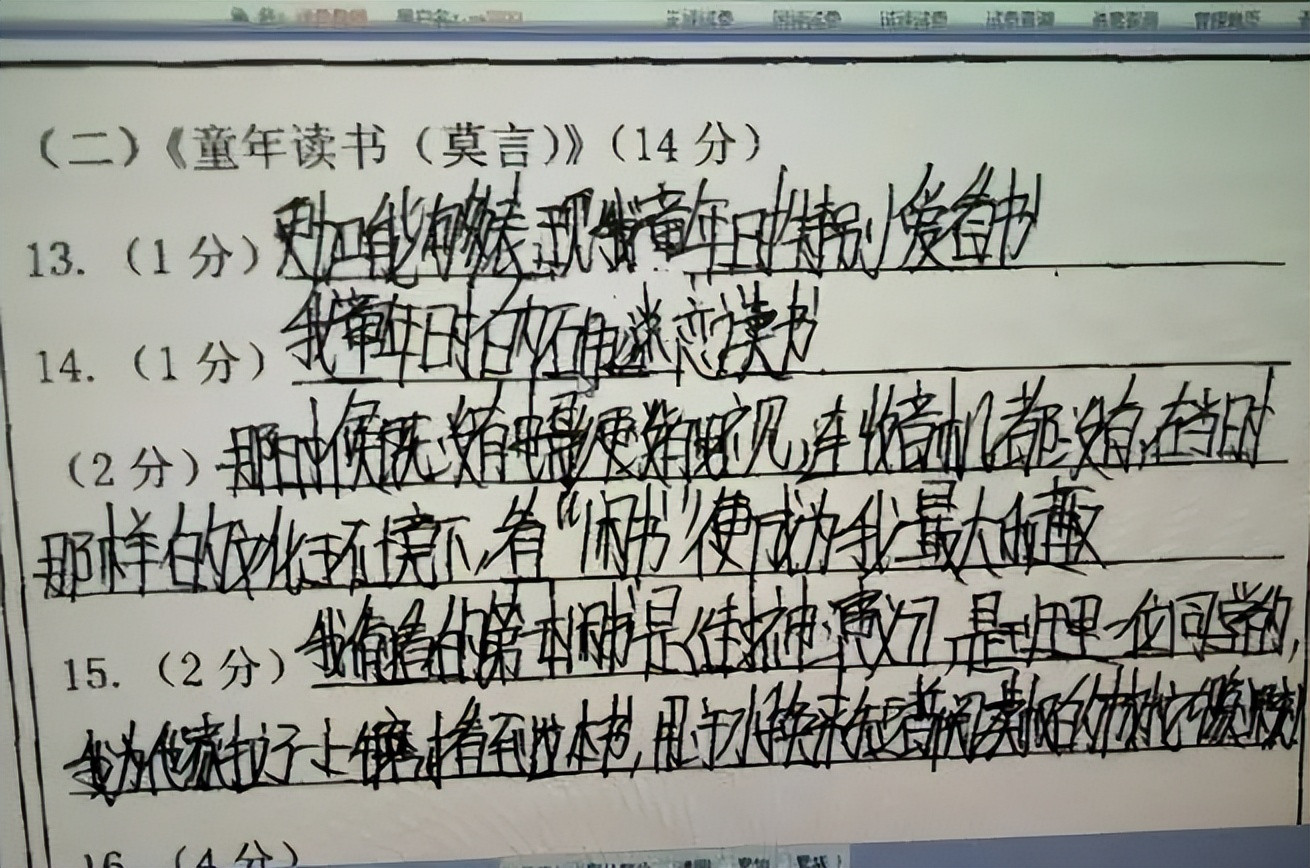 （二）《童年读书（莫言）》（14 分）
13. （1 分）更加能够表现我童年时特别爱看书
14. （1 分）我童年时的确迷恋读书
（2 分）那时候既没有电影更没有电视，连收音机都没有，在当时
那样的文化环境下，看“闲书”便成为我最大的乐趣
15. （2 分）我看的第一本闲书是《封神演义》，是班里一位同学的，
我为他家拉了上午磨才看到这本书，用汗水换来短暂阅读权的
16. （4 分）